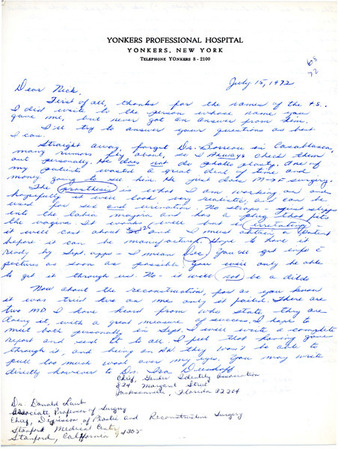 YONKERS PROFESSIONAL HOSPITAL
YONKERS, NEW YORK
TELEPHONE YONKERS 8-2100
July 15, 1972
Dear Nick,
First of all, thanks for the names of the P.S.
I did write to the person whose name you
gave me, but never got an answer from them.
I'll try to answer your questions as best
I can.
Straight away, forget Dr. Bureau in Casablanca,
many rumors fly about, so I always check them
out personally. He does not do phalloplasty. One of
my patients wasted a great deal of time and
money going to see him. He just does M-F surgery.
The prosthesis is what I am working on and
hopefully it will look very realistic and can be
used for sex and urination. No straps
into the labia majora and has a
the vagina
it will cost about and I must obtain a patent
before it can be manufactured. Hope to have it
ready by Sept. You'll get info &
pictures as soon as possible. You will only be able
to get it through us. No - it will not be a dildo
Now about the reconstruction, for as you know
it was tried two as me only it partic. There are
two MD I have heard from who state, they are
doing it with a good measure of success. I hope to
meet both personally in Sept. I will write a complete
report and send it to all. I feel that having gone
through it, and being an RN they won't be able to
pull too much wool over my eyes. You may write
directly however to Dr. Ira
Chief, Gender Identity Association
Street
Jacksonville, Florida 32204
Dr. Donald Laub
Associate Professor of Surgery
Chief, Division of Plastic and Reconstructive Surgery
Stanford Medical Center
Stanford, California